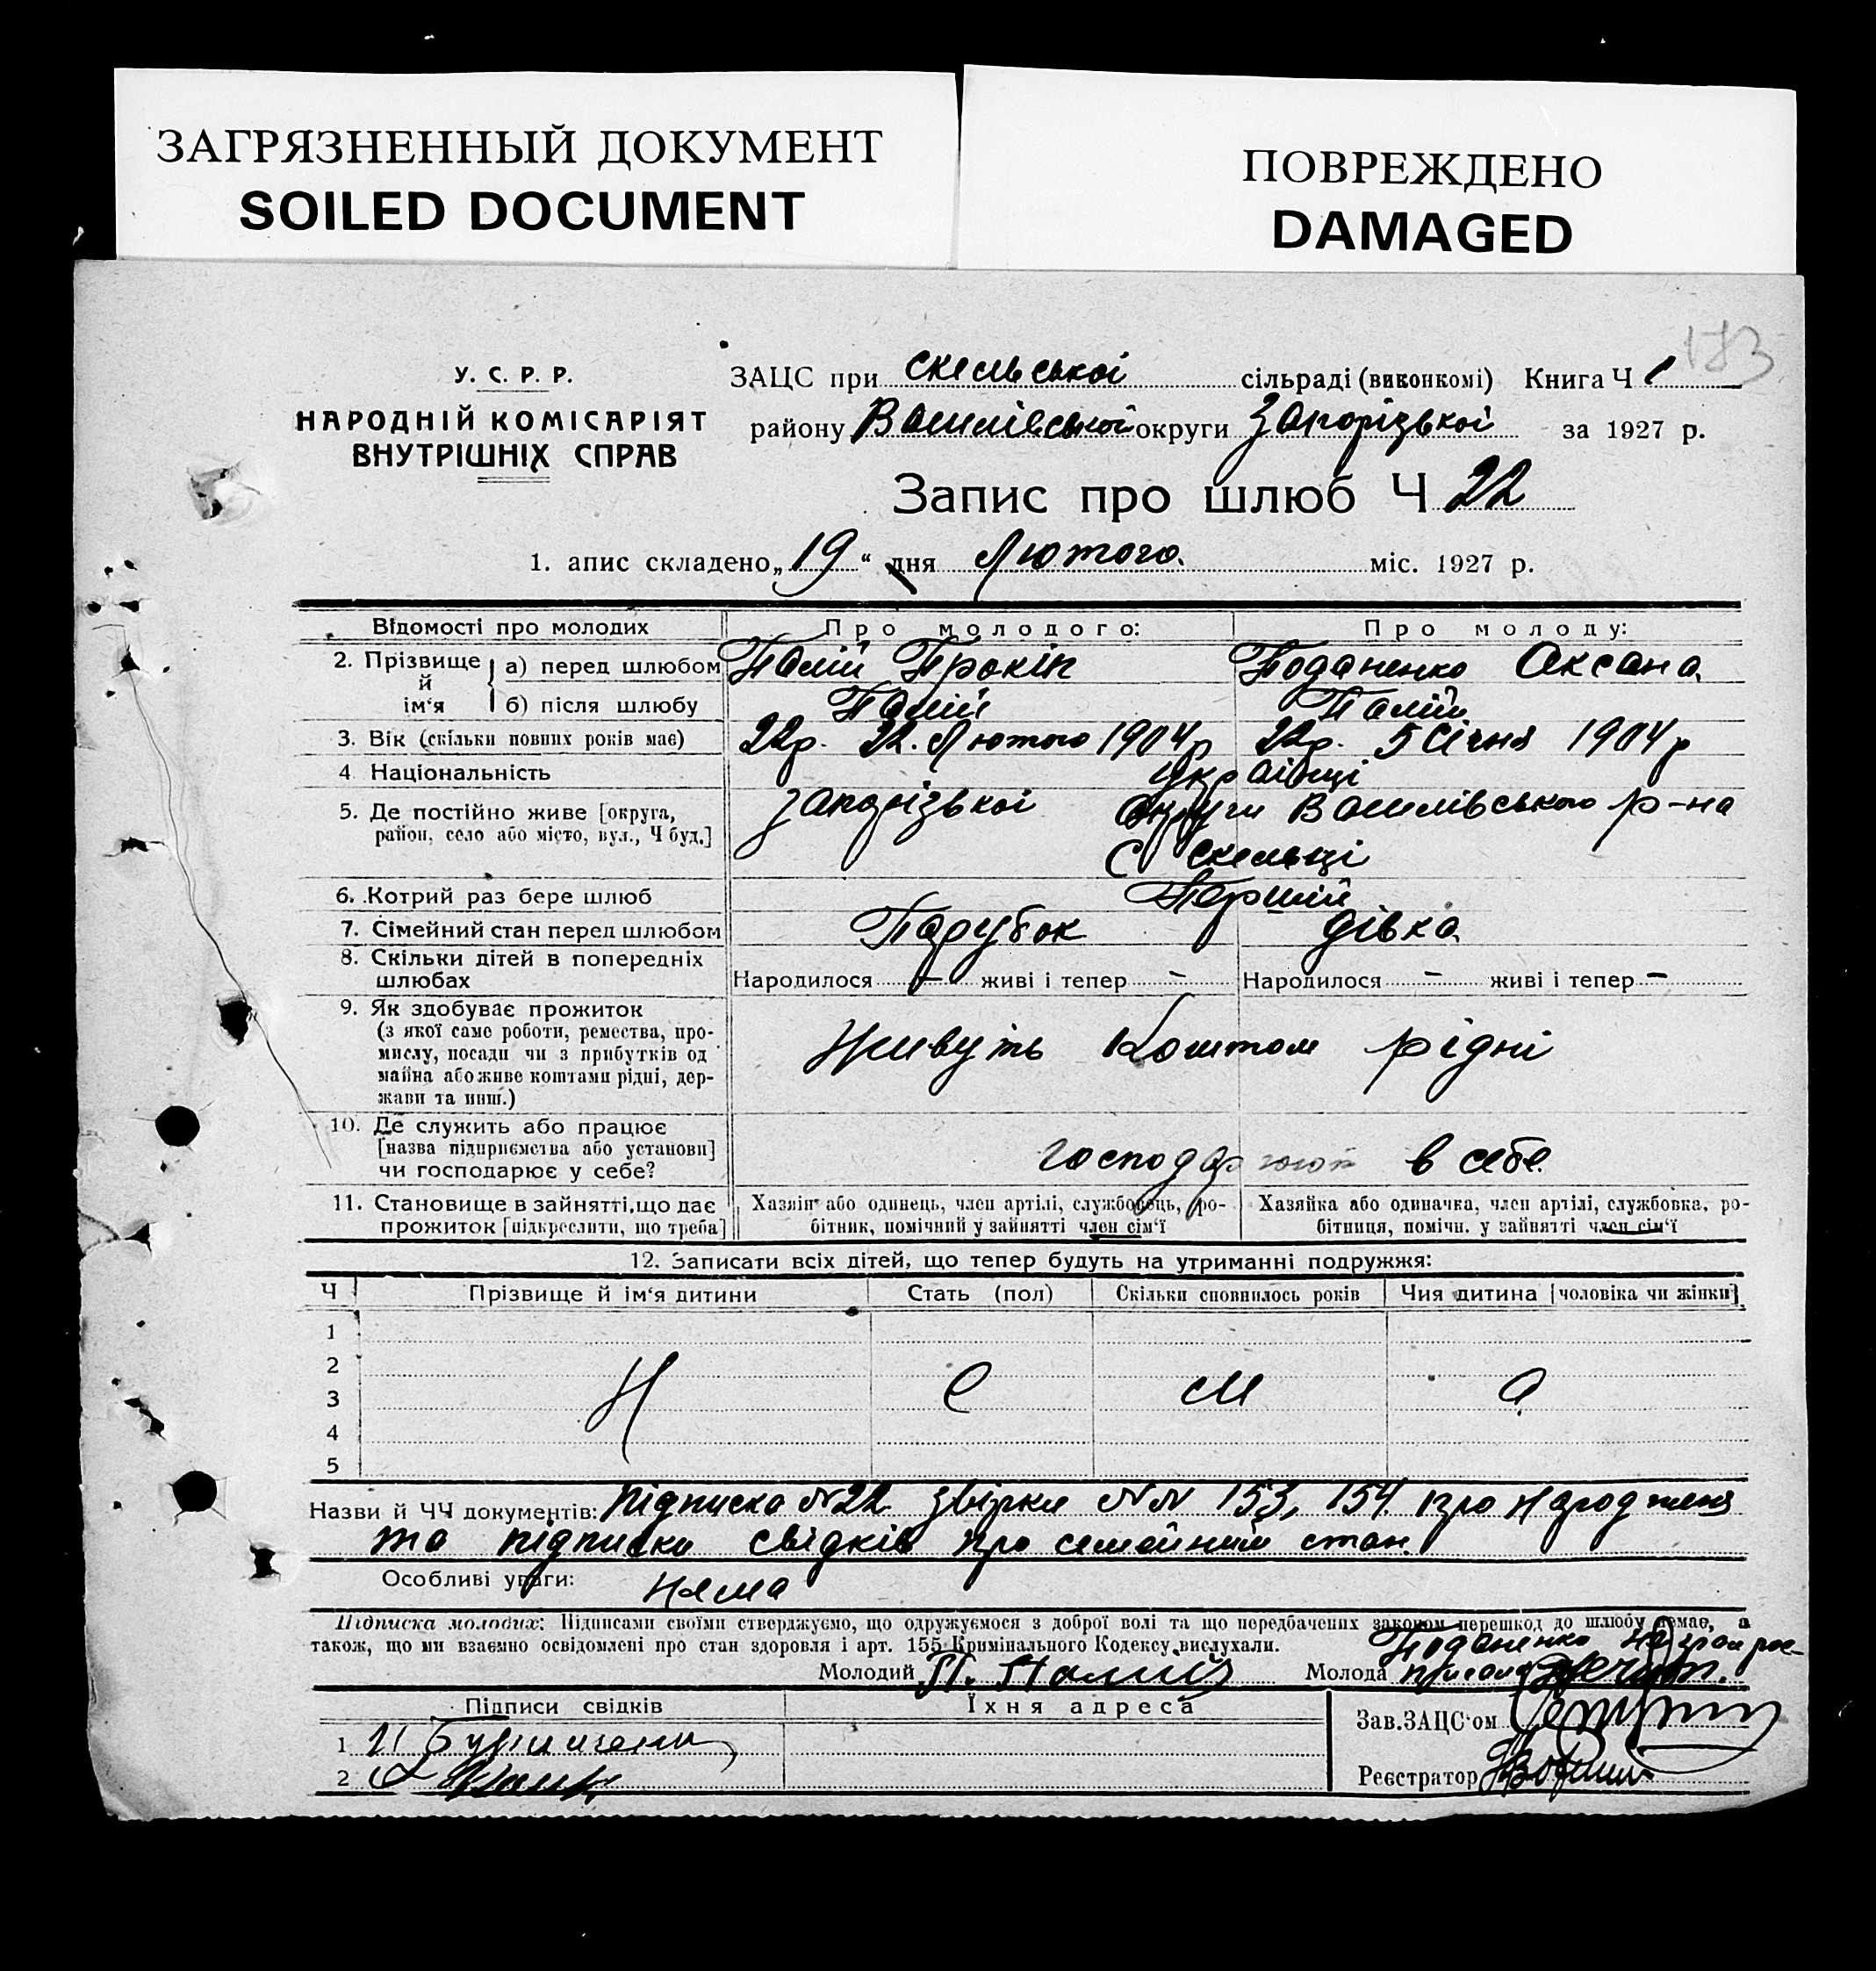 ЗАГРЯЗНЕННЫЙ ДОКУМЕНТ
SOILED DOCUMENT
ПОВРЕЖДЕНО
DAMAGED
183
У. С. Р. Р.
НАРОДНІЙ КОМІСАРІЯТ
ВНУТРІШНІХ СПРАВ
ЗАЦС при скельської сільраді (виконкомі) Книга Ч 1
району Василівської округи Запорізької за 1927 р.
Запис про шлюб Ч 22
1. апис складено „19“ дня Лютого міс. 1927 р.
Відомості про молодих Про молодого: Про молоду:
2. Прізвище й ім‘я а) перед шлюбом Палій Прокіп Поданенко Оксана
б) після шлюбу Палій Палій
3. Вік (скільки повних років має) 22р. 22. Лютого 1904р 22р. 5 Січня 1904р
4 Національність Українці
5. Де постійно живе [округа, район, село або місто, вул., Ч буд.] Запорізької округи Василівського р-на
с скельці
6. Котрий раз бере шлюб Перший
7. Сімейний стан перед шлюбом Парубок дівка
8. Скільки дітей в попередніх шлюбах Народилося — живі і тепер — Народилося — живі і тепер —
9. Як здобуває прожиток
(з якої саме роботи, ремества, про-
мислу, посади чи з прибутків од
майна або живе коштами рідні, дер-
жави та инш.)
Живуть Коштом рідні
10. Де служить або працює
[назва підприємства або установи]
чи господарює у себе?
господарюют в себе
11. Становище в зайнятті, що дає
прожиток [підкреслити, що треба]
Хазяїн або одинець, член артілі, службовець, ро-
бітник, помічний у зайнятті член сім‘ї
Хазяйка або одиначка, член артілі, службовка, ро-
бітниця, помічн. у зайнятті член сім‘ї
12. Записати всіх дітей, що тепер будуть на утриманні подружжя:
Ч Прізвище й ім‘я дитини Стать (пол) Скільки сповнилось років Чия дитина [чоловіка чи жінки]
1
2
3 Н е м а
4
5
Назви й ЧЧ документів: Підписка №22 звірки №№ 153, 154. про народженя
та підписки свідків про семейний стан.
Особливі уваги: Нема
Підписка молодих: Підписами своїми стверджуємо, що одружуємося з доброї волі та що передбачених законом перешкод до шлюбу немає, а
також, що ми взаємно освідомлені про стан здоровля і арт. 155 Кримінального Кодексу вислухали.
Молодий П. Палій Молода Поданенко
Підписи свідків Їхня адреса
1
2
Зав. ЗАЦС‘ом
Реєстратор